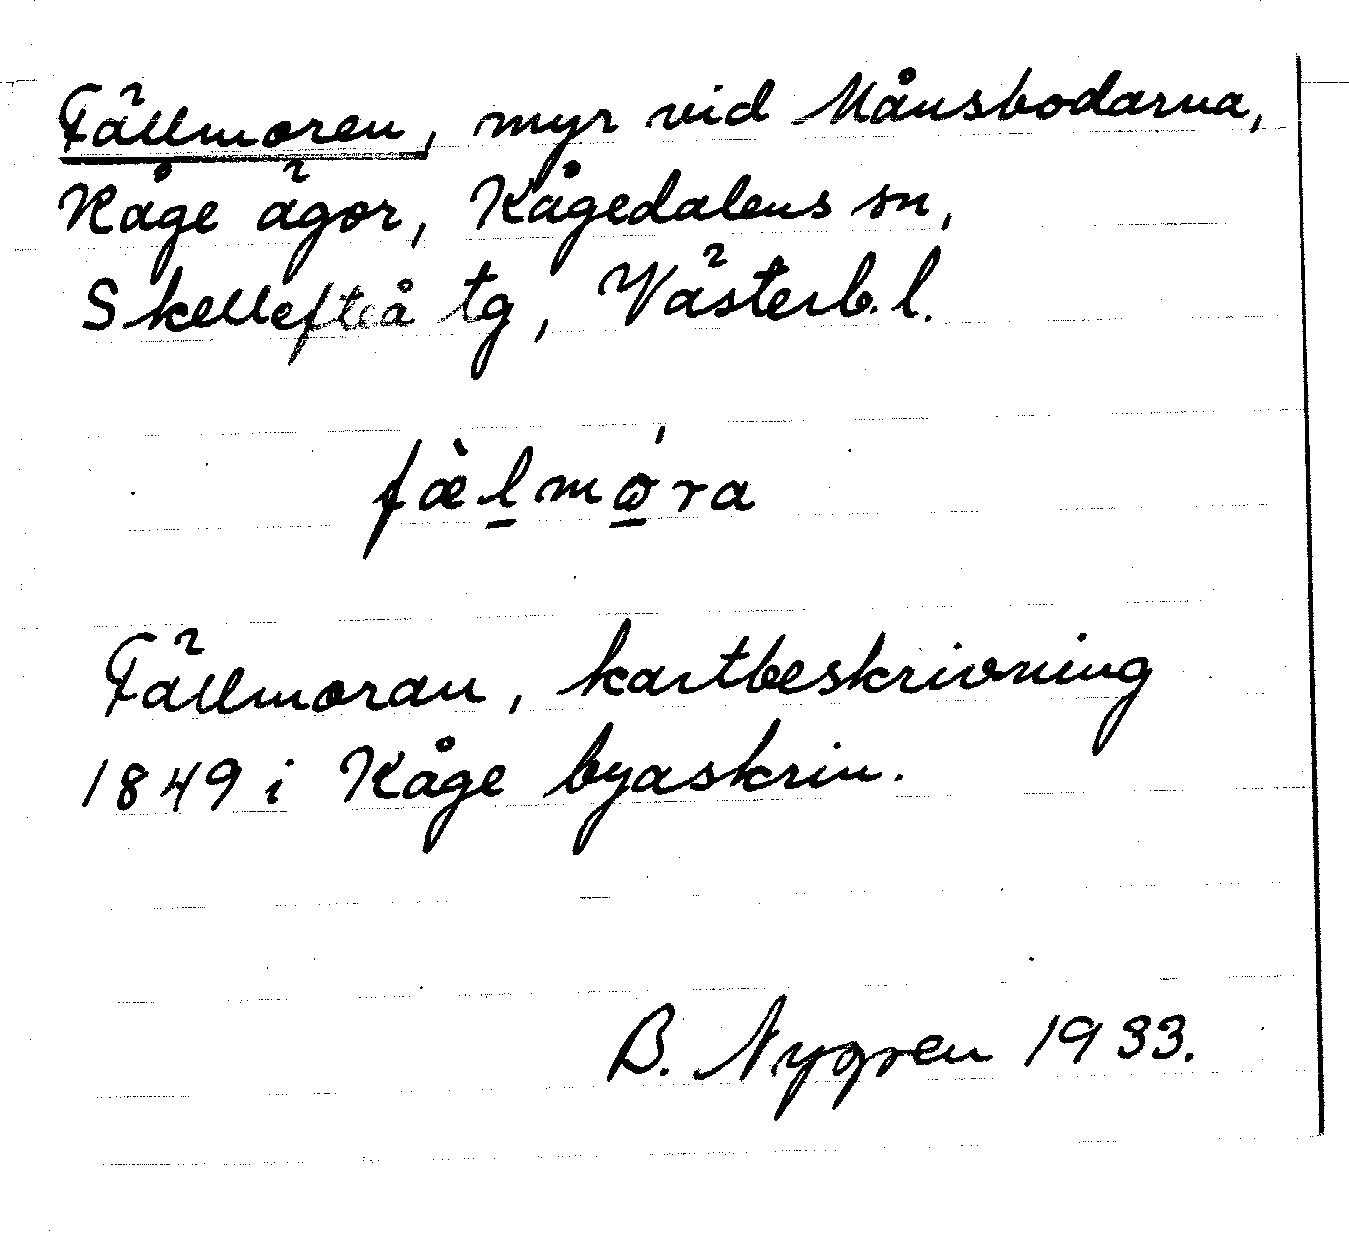 Fällmoren, myr vid Månsbodarna,
Kåge ägor, Kågedalens sn,
Skellefteå tg, Västerb. l.
fæ̀l̲mǿ̲ra
Fällmoran, kartbeskrivning
1849 i Kåge byaskrin.
B. Nygren 1933.